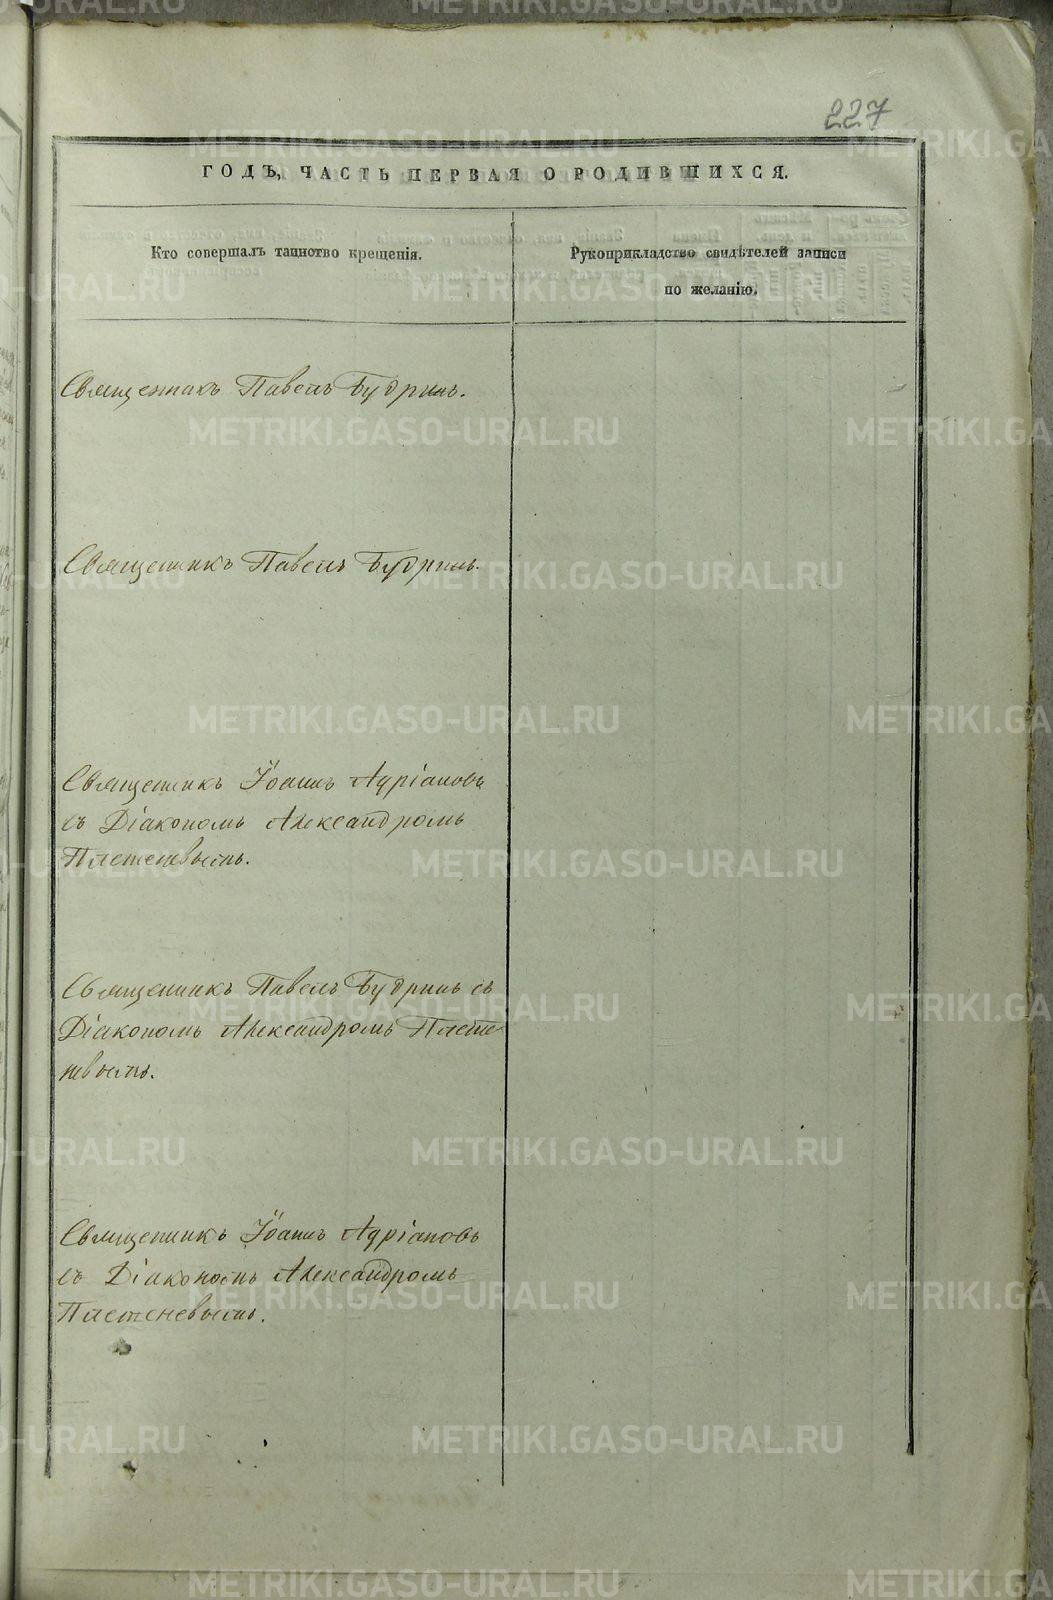 227
ГОДЪ, ЧАСТЬ ПЕРВАЯ О РОДИВШИХСЯ.
Кто совершалъ таинство крещенія.
Рукоприкладство свидѣтелей записи
по желанію.
Священникъ Павелъ Будринъ.
Священникъ Павелъ Будринъ.
Священникъ Іоаннъ Адріановъ
съ Діакономъ Александромъ
Плетеневымъ.
Священникъ Павелъ Будринъ съ
Діакономъ Александромъ Плете-
невымъ.
Священникъ Іоаннъ Адріановъ
съ Діакономъ Александромъ
Плетеневымъ.
METRIKI.GASO-URAL.RU